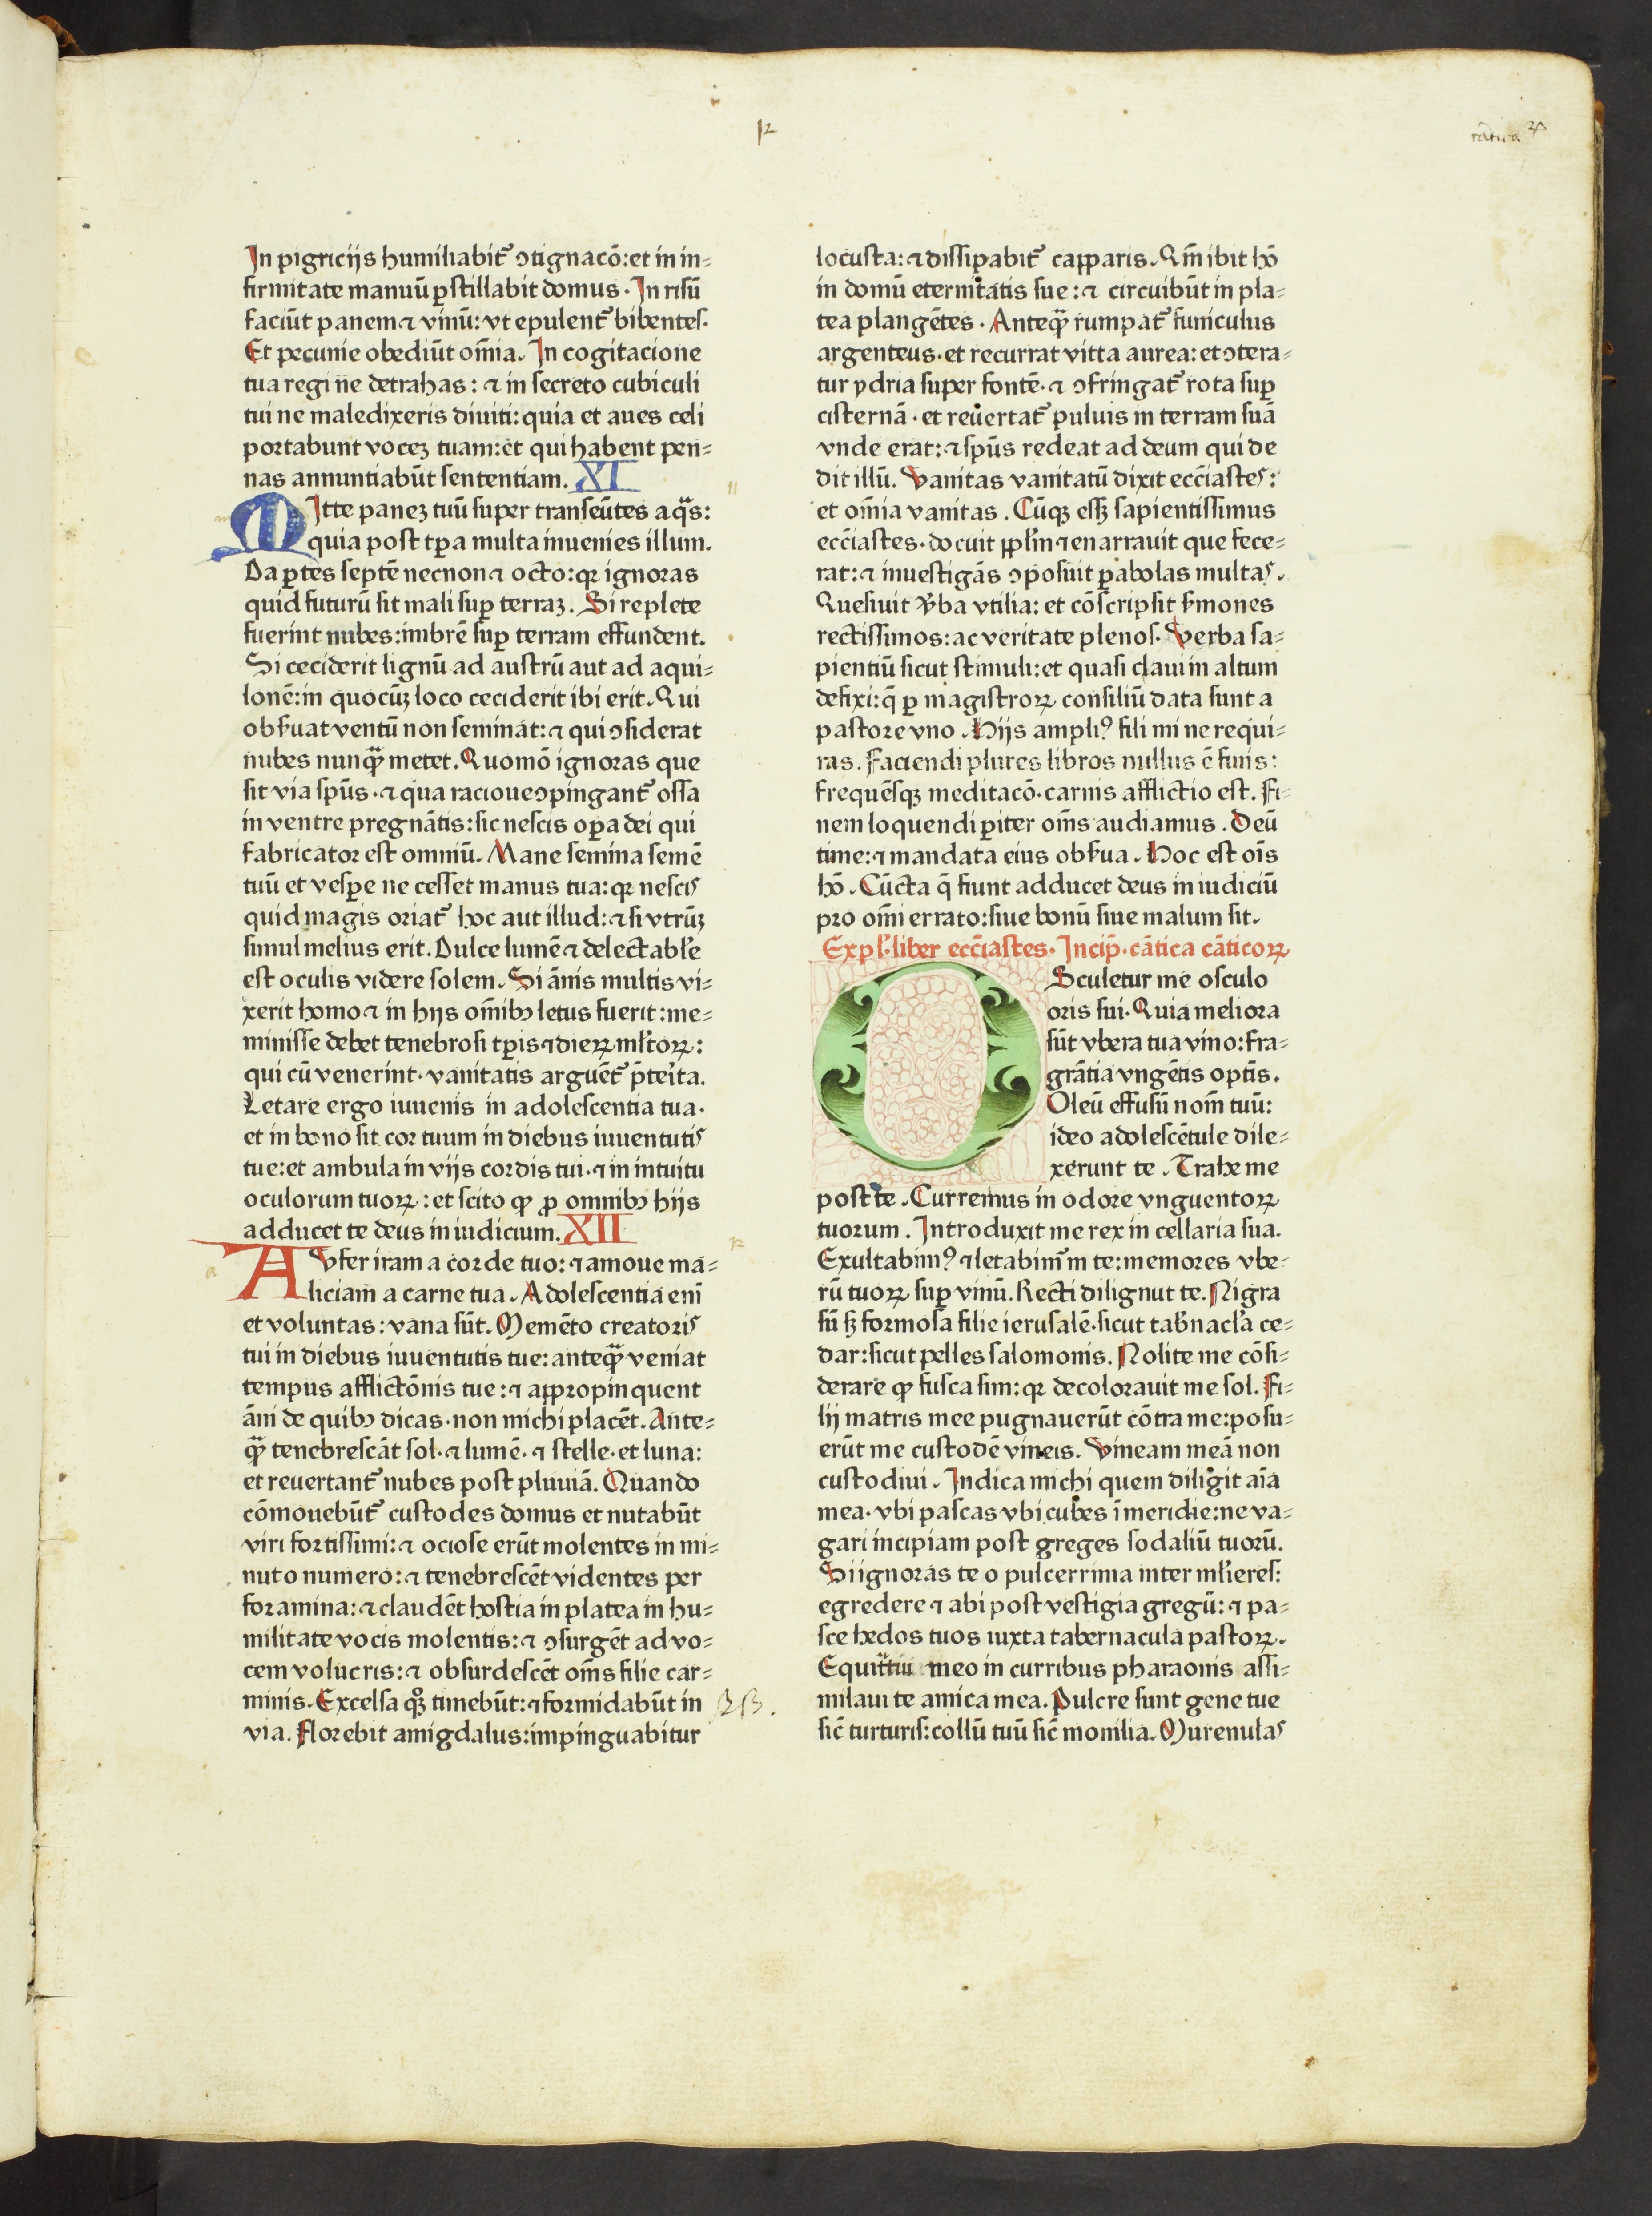 In pigriciis humiliabit᷒ ↄtignacō: et in in⸗
firmitate manuū ꝑstillabit domus. In risū
faciūt panem ⁊ vinū: vt epulent᷒ bibentes.
Et pecunie obediūt om̄ia. In cogitacione
tua regi ne detrahas: ⁊ in secreto cubiculi
tui ne maledixeris diuiti: quia et aues celi
portabunt voceꝫ tuam: et qui habent pen⸗
nas annuntiabūt sententiam. XI
MItte paneꝫ tuū super transeūtes aq̄s:
quia post tꝑa multa inuenies illum.
Da ꝑtes septē necnon ⁊ octo: qꝛ ignoras
quid futurū sit mali suꝑ terraꝫ. Si replete
fuerint nubes: imbrē suꝑ terram effundent.
Si ceciderit lignū ad austrū aut ad aqui⸗
lonē: in quocūꝫ loco ceciderit ibi erit. Qui
obẜuat ventū non seminat: ⁊ qui ↄsiderat
nubes nunqᷓ metet. Quomō ignoras que
sit via sp̄us. ⁊ qua racioue ↄpingant᷒ ossa
in ventre pregnātis: sic nescis oꝑa dei qui
fabricator est omniū. Mane semina semē
tuū et vesꝑe ne cesset manus tua: qꝛ nescis
quid magis oriat᷒ hoc aut illud: ⁊ si vtrūꝫ
simul melius erit. Dulce lumē ⁊ delectabl̓e
est oculis videre solem. Si ānis multis vi⸗
xerit homo ⁊ in hijs om̄ibꝫ letus fuerit: me⸗
minisse debet tenebrosi tꝑis ⁊ dieꝝ ml̓toꝝ:
qui cū venerint. vanitatis arguēt᷒ p̄teita.
Letare ergo iuuenis in adolescentia tua.
et in bono sit cor tuum in diebus iuuentutis
tue: et ambula in vijs cordis tui. ⁊ in intuitu
oculorum tuoꝝ: et scito ꝙ ꝓ omnibꝫ hijs
adducet te deus in iudicium. XII
AVfer iram a corde tuo: ⁊ amoue ma⸗
liciam a carne tua. Adolescentia enī
et voluntas: vana sūt. Memēto creatoris
tui in diebus iuuentutis tue: anteqᷓ veniat
tempus afflictōnis tue: ⁊ appropinquent
āni de quibꝫ dicas. non michi placēt. Ante⸗
qᷓ tenebrescāt sol. ⁊ lumē. ⁊ stelle. et luna:
et reuertant᷒ nubes post pluuiā. Quando
cōmouebūt᷒ custodes domus et nutabūt
viri fortissimi: ⁊ ociose erūt molentes in mi⸗
nuto numero: ⁊ tenebrescēt videntes per
foramina: ⁊ claudēt hostia in platea in hu⸗
militate vocis molentis: ⁊ ↄsurgēt ad vo⸗
cem volucris: ⁊ obsurdescēt om̄s filie car⸗
minis. Excelsa qꝫ timebūt: ⁊ formidabūt in
via. Florebit amigdalus: impinguabitur
locusta: ⁊ dissipabit᷒ capparis. Qm̄ ibit hō
in domū eternitatis sue: ⁊ circuibūt in pla⸗
tea plangētes. Anteqᷓ rumpat᷒ funiculus
argenteus. et recurrat vitta aurea: et ↄtera⸗
tur ydria super fontē. ⁊ ↄfringat᷒ rota suꝑ
cisternā. et reuertat᷒ puluis in terram suā
vnde erat: ⁊ sp̄us redeat ad deum qui de
dit illū. Vanitas vanitatū dixit ecc̄iastes:
et om̄ia vanitas. Cūqꝫ essꝫ sapientissimus
ecc̄iastes. docuit ppl̓m ⁊ enarrauit que fece⸗
rat: ⁊ inuestigās ↄposuit ꝑabolas multas.
Quesiuit v̓ba vtilia: et cōscripsit ẜmones
rectissimos: ac veritate plenos. Verba sa⸗
pientiū sicut stimuli: et quasi claui in altum
defixi: q̄ ꝑ magistroꝝ consiliū data sunt a
pastore vno. Hijs ampliꝰ fili mi ne requi⸗
ras. Faciendi plures libros nullus ē finis:
frequēsqꝫ meditacō. carnis afflictio est. Fi⸗
nem loquendi ꝑiter om̄s audiamus. Deū
time: ⁊ mandata eius obẜua. Hoc est oīs
hō. Cūcta q̄ fiunt adducet deus in iudiciū
pro om̄i errato: siue bonū siue malum sit.
Expl̓. liber ecc̄iastes. Incip̄. cātica cāticoꝝ
OSculetur me osculo
oris sui. Quia meliora
sūt vbera tua vino: fra⸗
grātia vngētis optīs.
Oleū effusū nom̄ tuū:
ideo adolescētule dile⸗
xerunt te. Trahe me
post te. Curremus in odore vnguentoꝝ
tuorum. Introduxit me rex in cellaria sua.
Exultabimꝰ ⁊ letabim᷒ in te: memores vbe⸗
rū tuoꝝ suꝑ vinū. Recti dilignut te. Nigra
sū sꝫ formosa filie ierusalē. sicut tab̓nacl̓a ce⸗
dar: sicut pelles salomonis. Nolite me cōsi⸗
derare ꝙ fusca sim: qꝛ decolorauit me sol. Fi⸗
lij matris mee pugnauerūt cōtra me: posu⸗
erūt me custodē vineis. Vineam meā non
custodiui. Indica michi quem diligit aīa
mea. vbi pascas vbi cubes ī meridie: ne va⸗
gari incipiam post greges sodaliū tuorū.
Si ignoras te o pulcerrima inter ml̓ieres:
egredere ⁊ abi post vestigia gregū: ⁊ pa⸗
sce hedos tuos iuxta tabernacula pastoꝝ.
Equitatui meo in curribus pharaonis assi⸗
milaui te amica mea. Pulcre sunt gene tue
sic̄ turturis: collū tuū sic̄ monilia. Murenulas